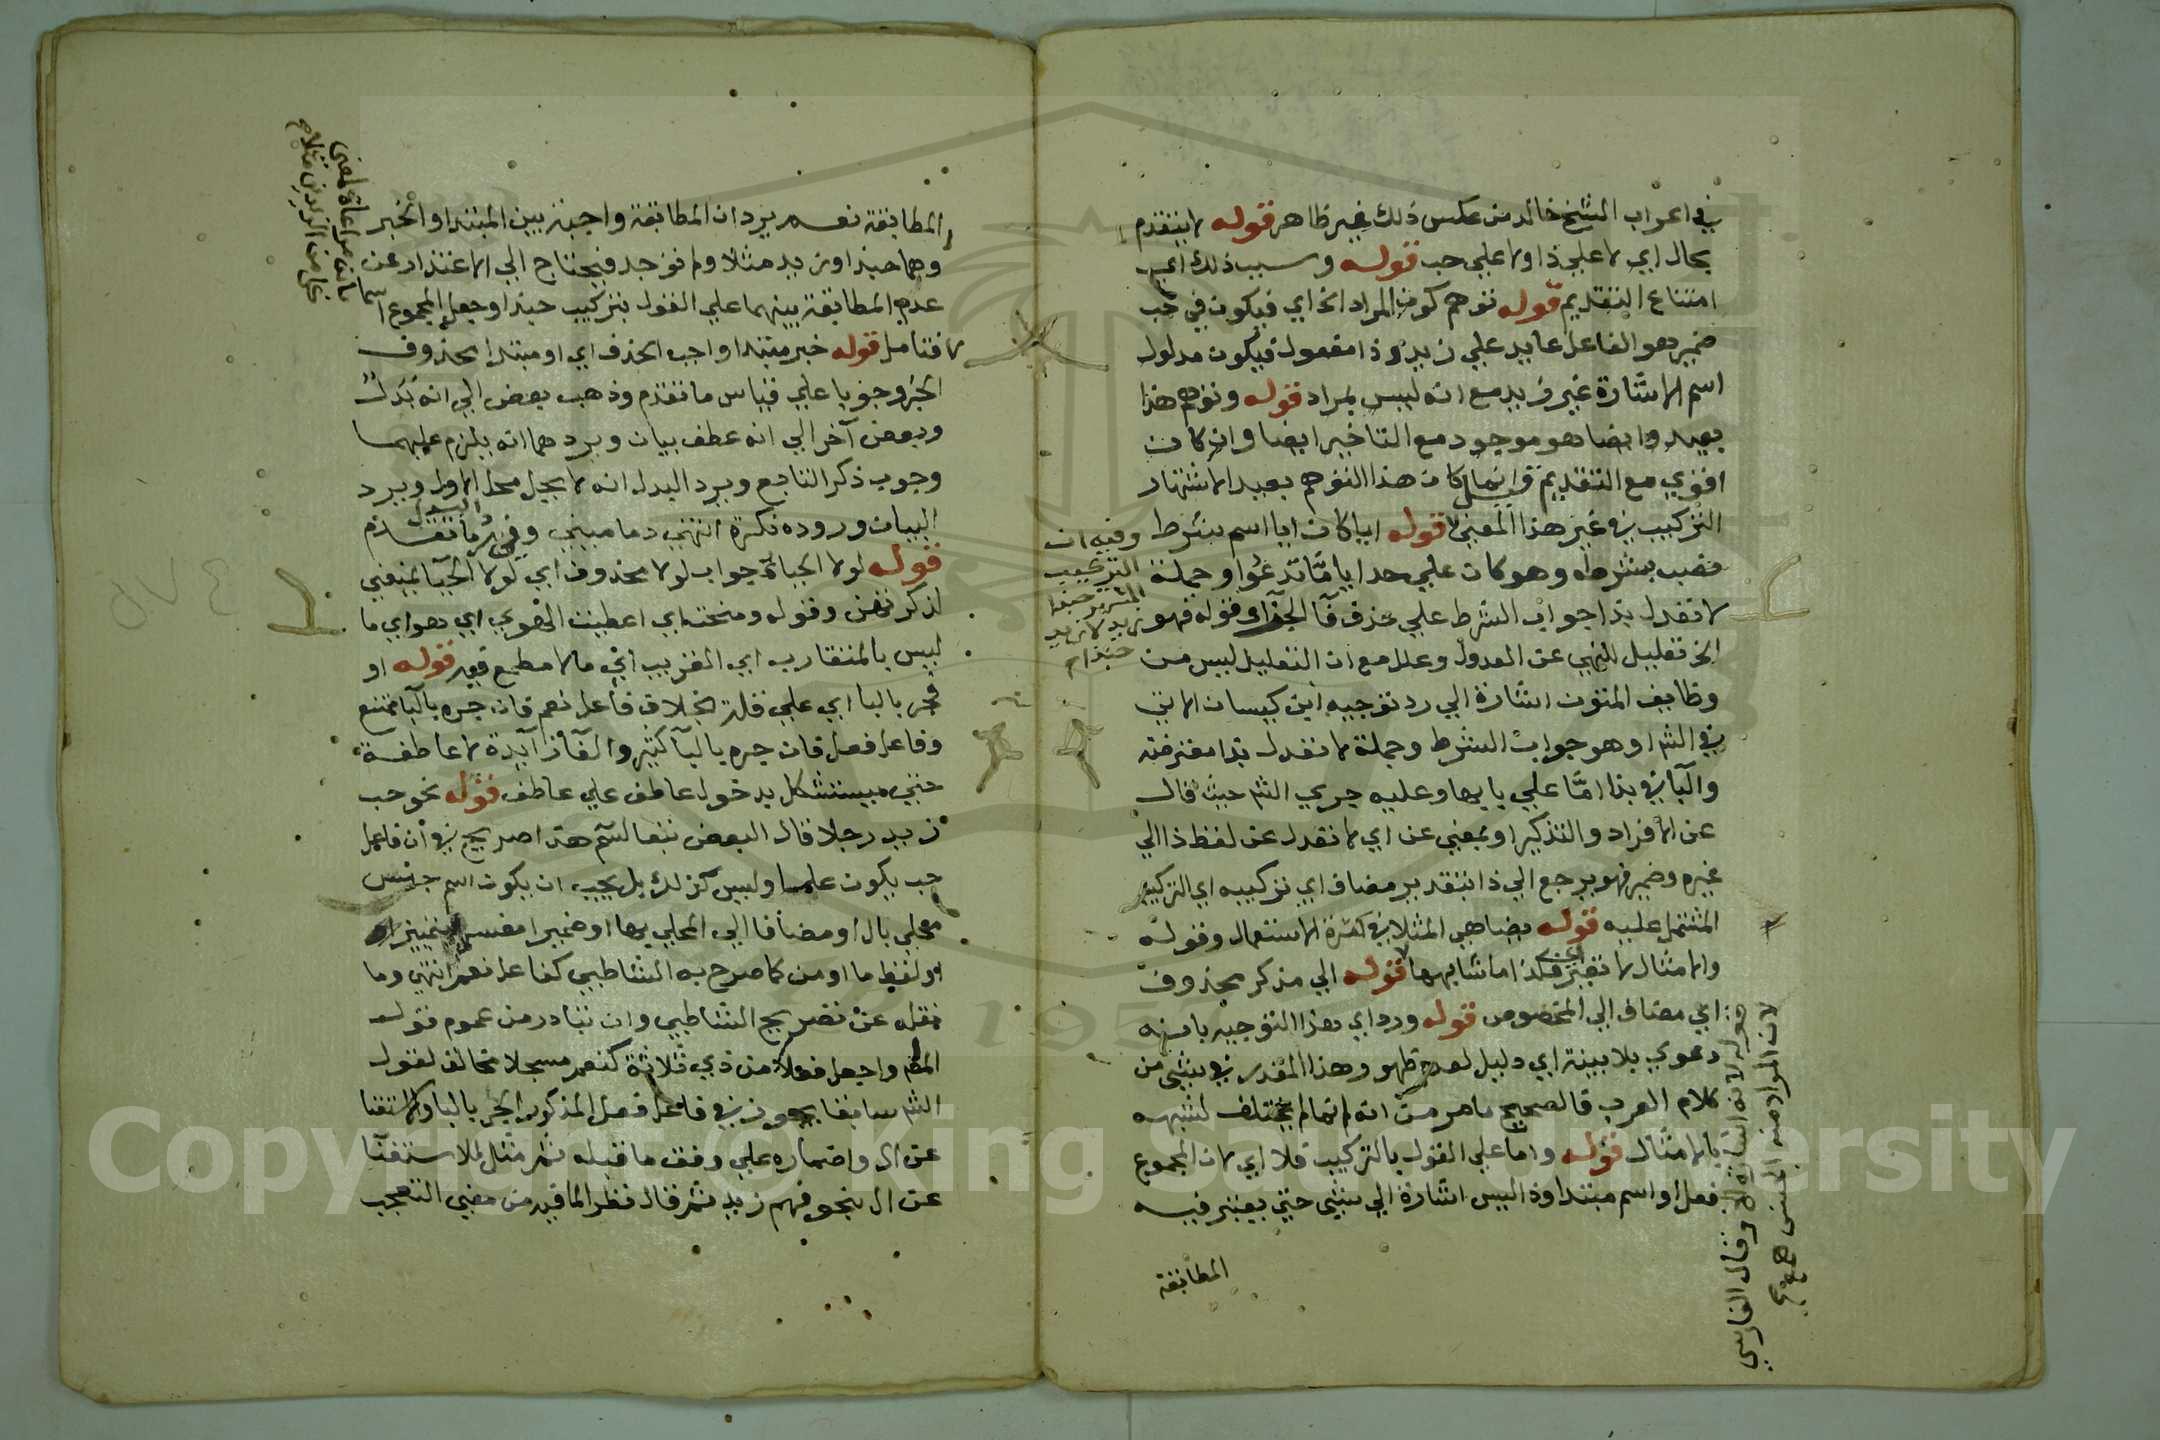 في اعراب الشيخ خالد من عكس ذلك غير ظاهر قوله لا يتقدم
بحال اي لا علي ذا ولا علي حب قوله وسبب ذلك اي
امتناع التقديم قوله توهم كون المراد الخ اي فيكون في حب
ضمير هو الفاعل عايد علي زيد وذا مفعول فيكون مدلول
اسم الاشارة غير زيد مع انه ليس بمراد قوله وتوهم هذا
بعيد وايضا هو موجود مع التاخير ايضا وان كان
اقوي مع التقديم وانما كان هذا التوهم بعيد الاشتهار
التركيب في غير هذا المعني قوله ايا كان ايا اسم شرط
نصب بشرطه وهو كان علي حد ايا مّا تدعوا وجملة
لا تعدل بذا جواب الشرط علي حذف فآ الجزآء وقوله فهو
الخ تعليل للنهي عن العدول وعلل مع ان التعليل ليس من
وظايف المتون اشارة الي رد توجيه ابن كيسان الاتي
في الشم او هو جواب الشرط وجملة لا تعدل بذا معترضة
والبآ في بذا امّا علي بابها وعليه جري الشم حيث قال
عن الافراد والتذكير او بمعني عن اي لا تعدل عن لفظ ذا الي
غيره وضمير فهو يرجع الي ذا بتقدير مضاف اي تركيبه اي التركيب
المشتمل عليه قوله يضاهي المثلا في كثرة الاستعمال وقوله
والامثال لا تغير فكذا ما شابهها قوله الي مذكر محذوف
اي مضاف الي المخصوص قوله ورد اي هذا التوجيه بانه
دعوي بلا بينة اي دليل لعدم ظهور هذا المقدر في شيء من
كلام العرب فالصحيح ما مر من انه انما لم يختلف لشبهه
بالامثال قوله واما علي القول بالتركيب فلا اي لان المجموع
فعل او اسم مبتدا وذا ليس اشارة الي شيء حتي يعتبر فيه
المطابقة
وفيه ان
التركيب
لان المراد منه الجنس
المطابقة نعم يرد ان المطابقة واجبة بين المبتدا والخبر
وهما حبذا وزيد مثلا ولم توجد فيحتاج الي الاعتذار عن
عدم المطابقة بينهما علي القول بتركيب حبذا وجعل المجموع اسما
فتامل قوله خبر مبتدا واجب الحذف اي او مبتدا محذوف
الخبر وجوبا علي قياس ما تقدم وذهب بعض الي انه بدل
وبعض آخر الي انه عطف بيان ويردهما انه يلزم عليهما
وجوب ذكر التابع ويرد البدل انه لا يحل محل الاول ويرد
البيان وروده نكرة انتهي دماميني وفي رد البدل ما تقدم
قوله لولا الحياة جواب لولا محذوف اي لولا الحيآ يمنعني
لذكر تهن وقوله ومنحت اي اعطيت الهوي اي هواي ما
ليس بالمتقارب اي القريب اي ما لا مطمع فيه قوله او
فجر بالبا اي علي قلة بخلاف فاعل نعم فان جره بالبآ ممتنع
وفاعل فعل فان جره بالبآ كثير والفآ زآيدة لا عاطفة
حتي يستشكل بدخول عاطف علي عاطف قوله نحو حب
زيد رجلا قال البعض تبعا لسم هذا صريح في ان فاعل
حب يكون علما وليس كذلك بل يجب ان يكون اسم جنس
محلي بال او مضافا الي المحلي بها او ضميرا مفسرا بتمييز
او لفظ ما او من كما صرح به الشاطبي كفاعل نعم انتهي وما
نقله عن تصريح الشاطبي وان تبادر من عموم قول
المص واجعل فعلا من ذي ثلاثة كنعم مسجلا مخالف لقول
الشم سابقا يجوز في فاعل فعل المذكور الجر بالبا والاستغنا
عن ال واضماره علي وفق ما قبله ثم مثل للاستغنآ
عن ال بنحو فهم زيد ثم قال نظرا لما فيه من معني التعجب